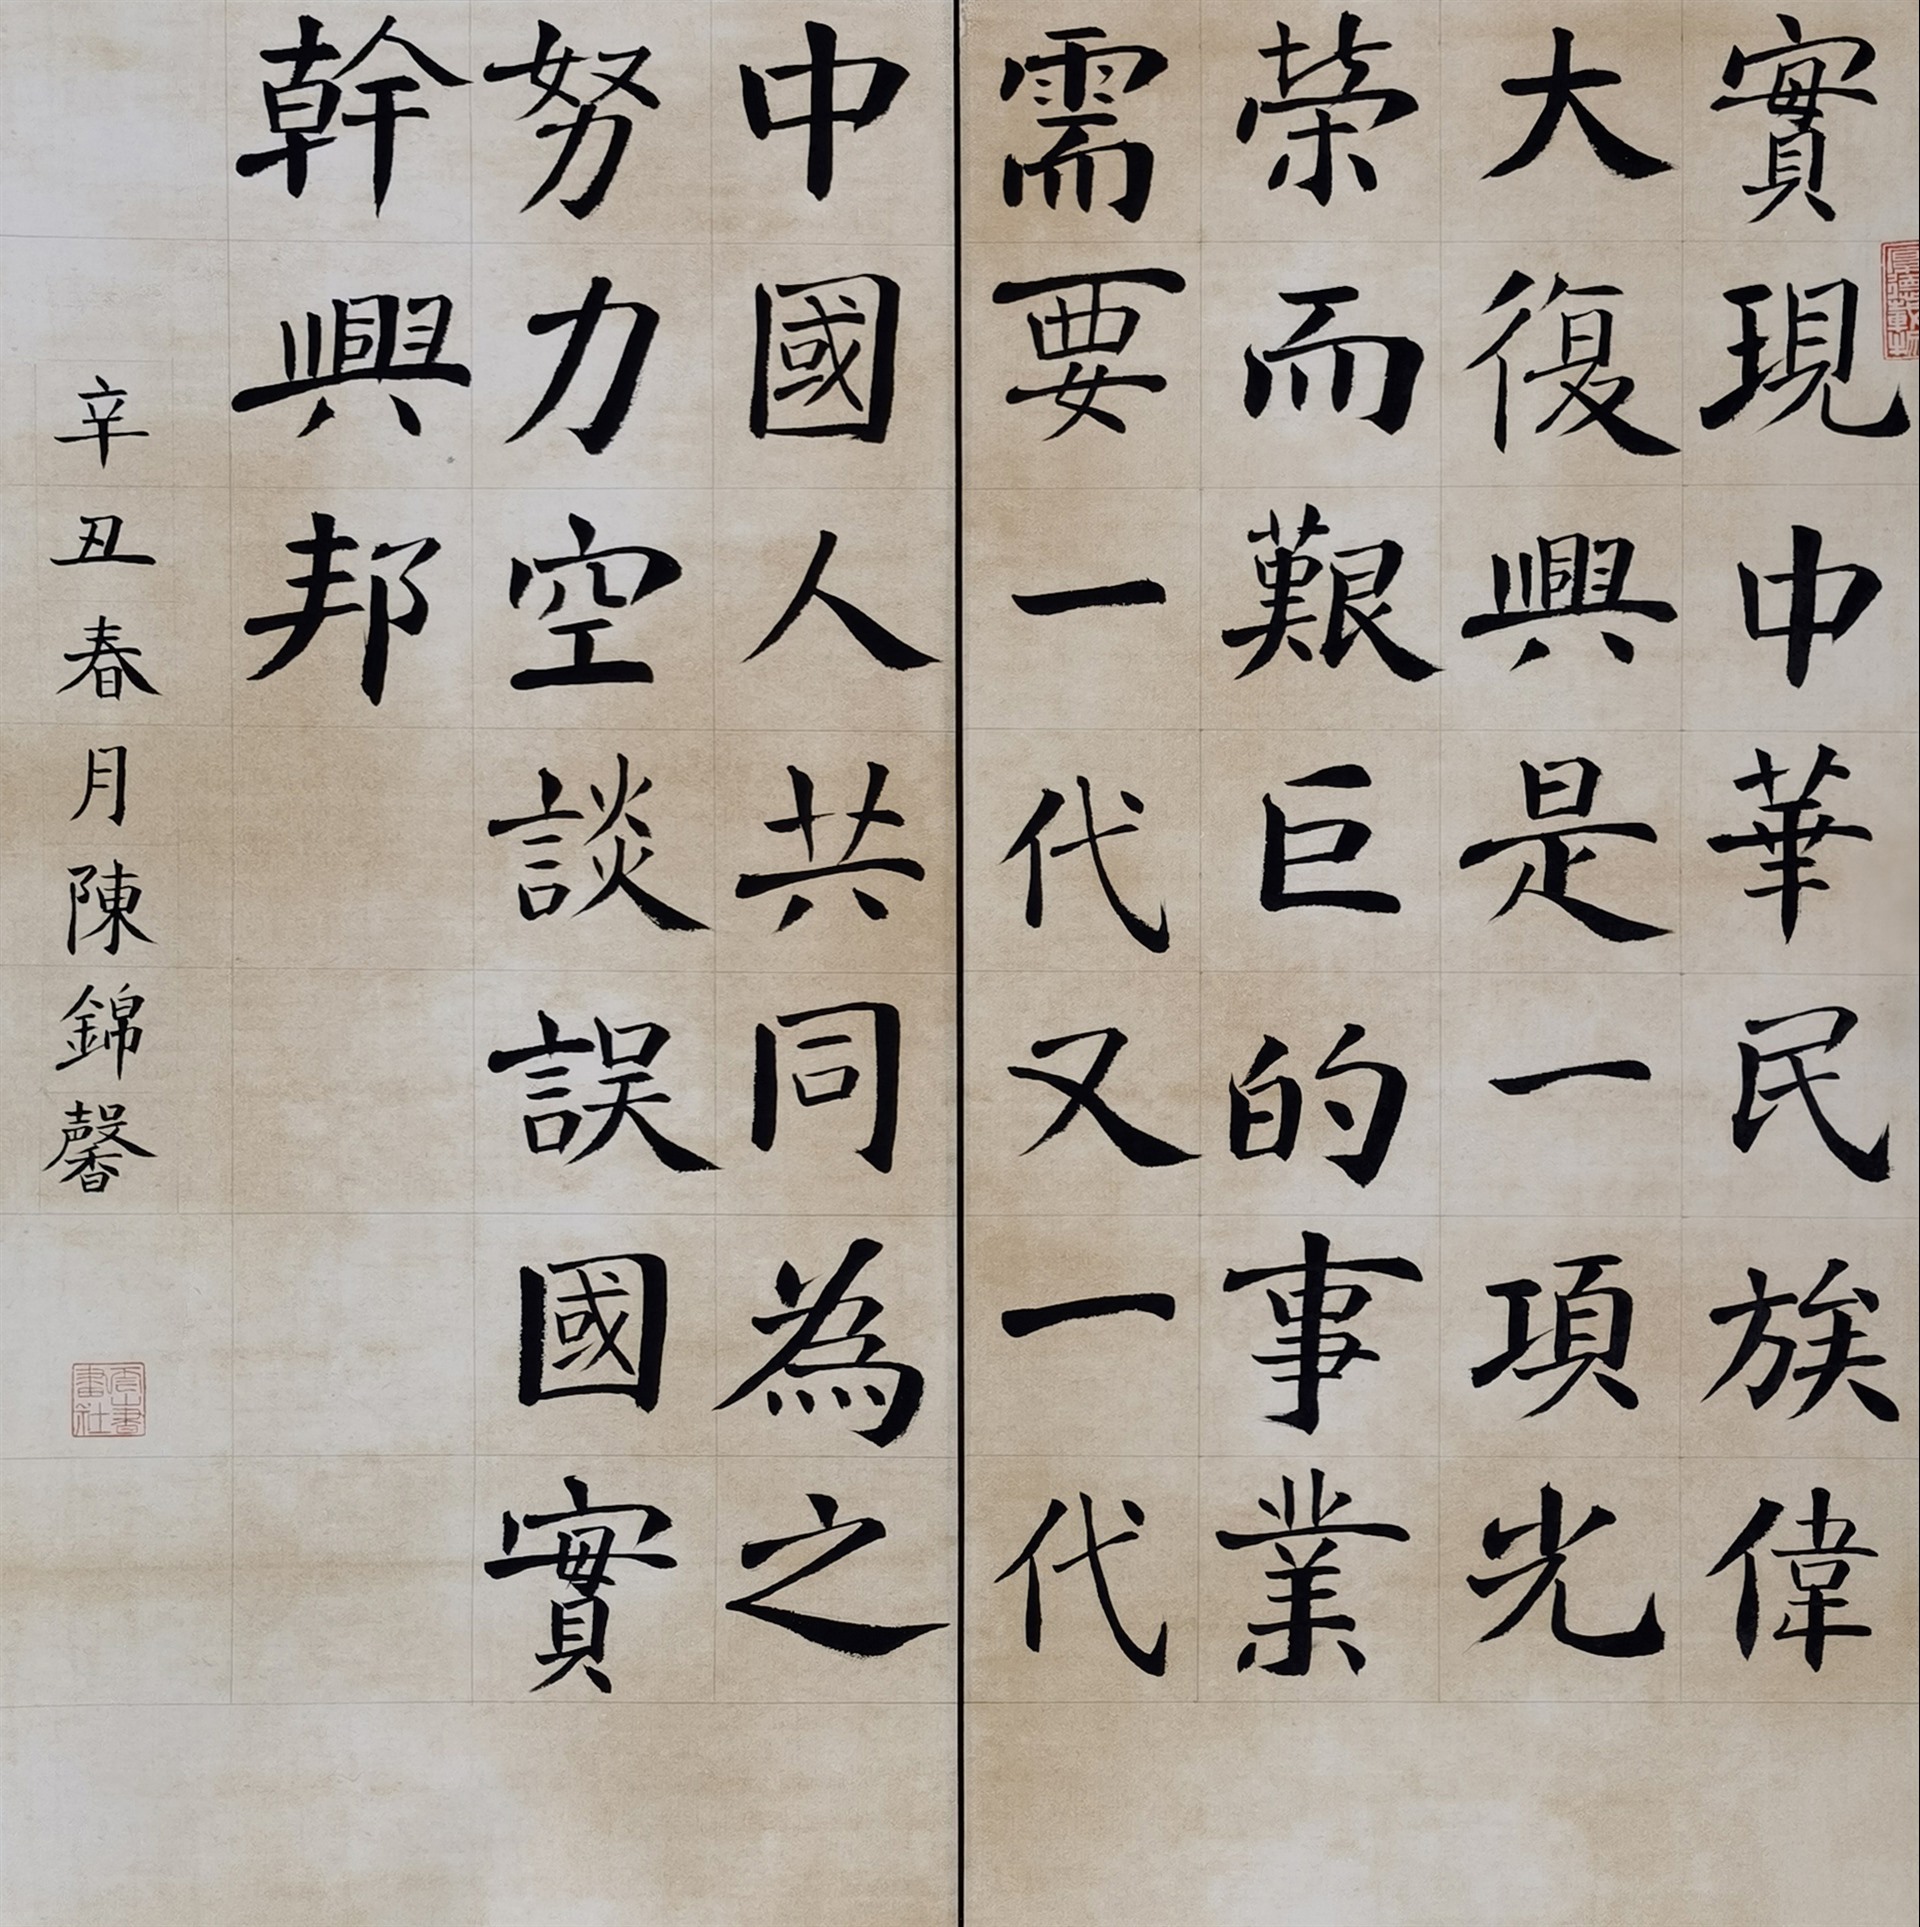 實現中華民族偉
大復興是一項光
榮而艱巨的事業
需要一代又一代
中國人共同為之
努力空談誤國實
幹興邦
辛丑春月陳錦馨
厚德載物